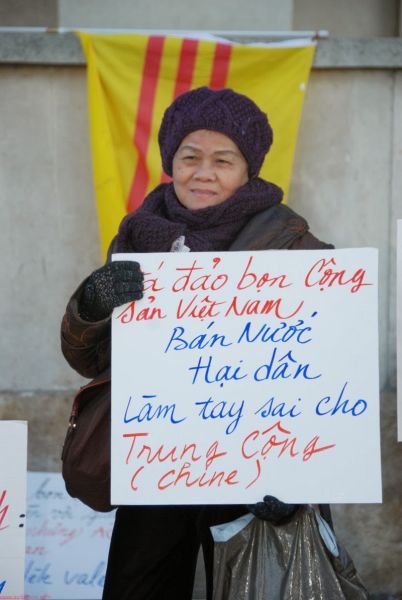 đảo bọn Cộng
Sản Việt Nam,
Bán Nước
Hại dân
Làm tay sai cho
Trung Cộng
(chine)
bọn
những